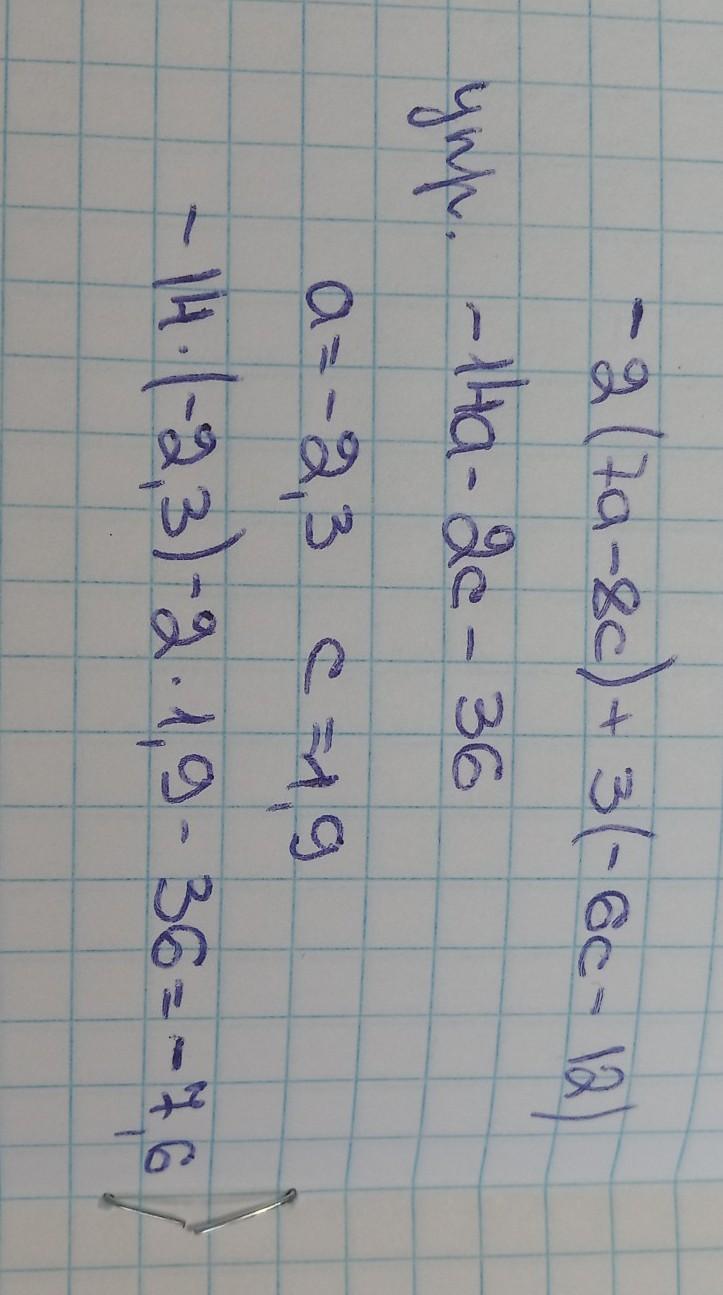 -2(7a-8c)+3(-6c-12)
упр. -14a-2c-36
a=-2,3 c=1,9
-14·(-2,3)-2·1,9-36=-7,6